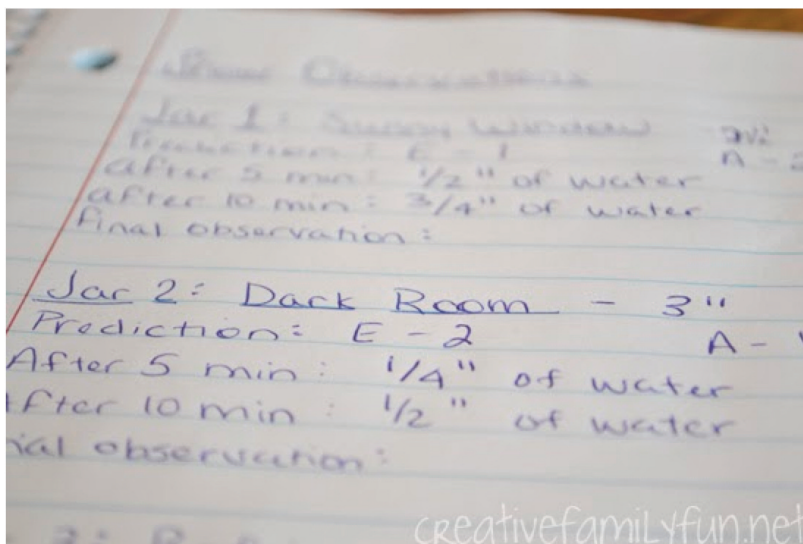 Observations
Jar 1: Sunny Window
Prediction: E - 1
After 5 min: 1/2" of water
After 10 min: 3/4" of water
Final observation:
Jar 2: Dark Room - 3"
Prediction: E - 2 A -
After 5 min: 1/4" of water
After 10 min: 1/2" of water
observation:
creativefamilyfun.net